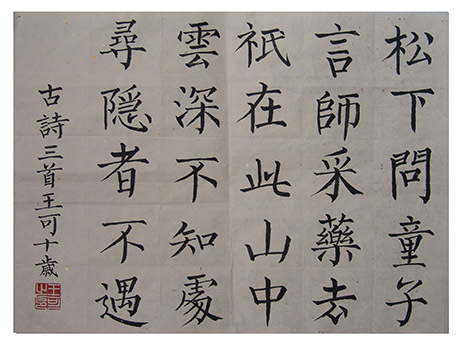 松下問童子
言師采藥去
祇在此山中
雲深不知處
尋隱者不遇
古詩三首王可十歲